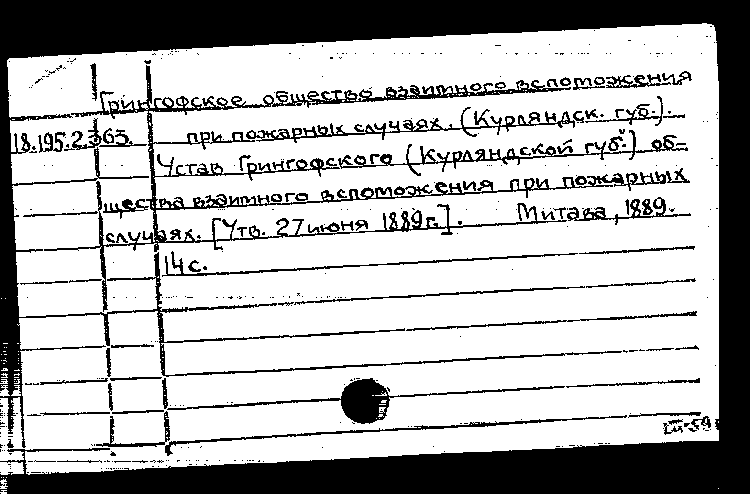 Грингофское общество взаимного вспоможения
18.195.2.363. при пожарных случаях. (Курляндск. губ.).
Устав Грингофского (Курляндской губ.) об-
щества взаимного вспоможения при пожарных
случаях. [Утв. 27 июня 1889 г.]. Митава, 1889.
14 с.